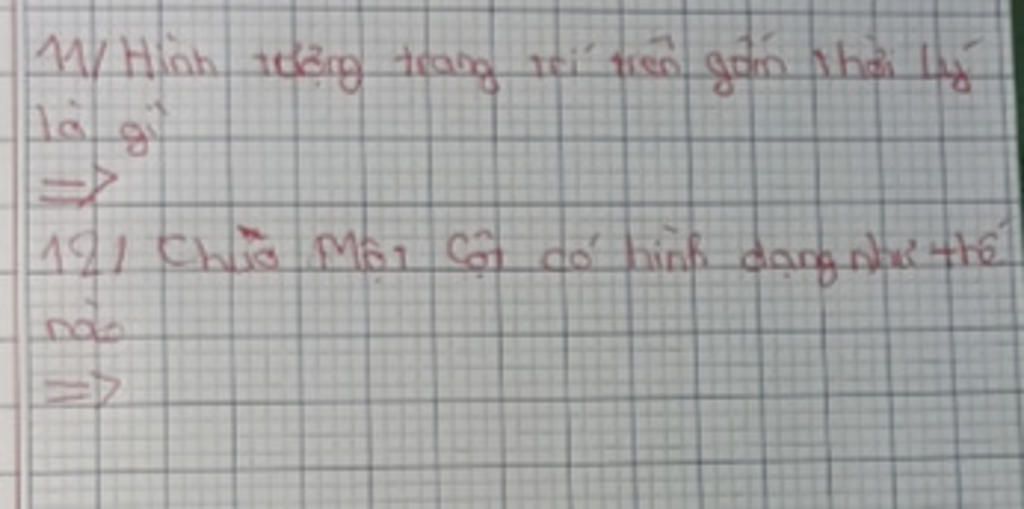 11/ Hình tượng trang trí trên gốm thời Lý
là gì
=>
12/ Chùa Một Cột có hình dạng như thế
nào
=>